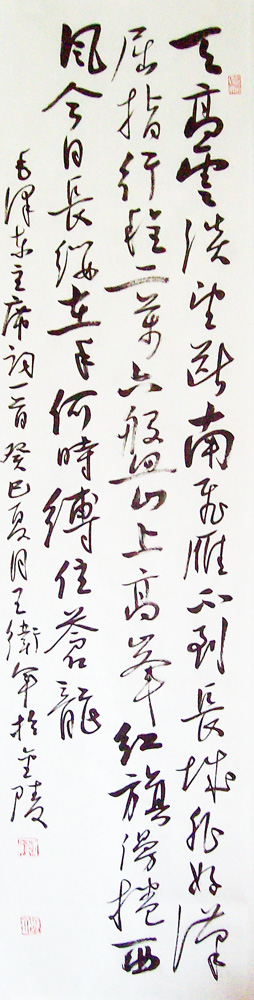 天高雲淡望斷南飛雁不到長城非好漢
屈指行程二萬六盤山上高峰紅旗漫捲西
風今日長纓在手何時縛住蒼龍
毛澤東主席詞一首癸巳夏月王衛軍於金陵